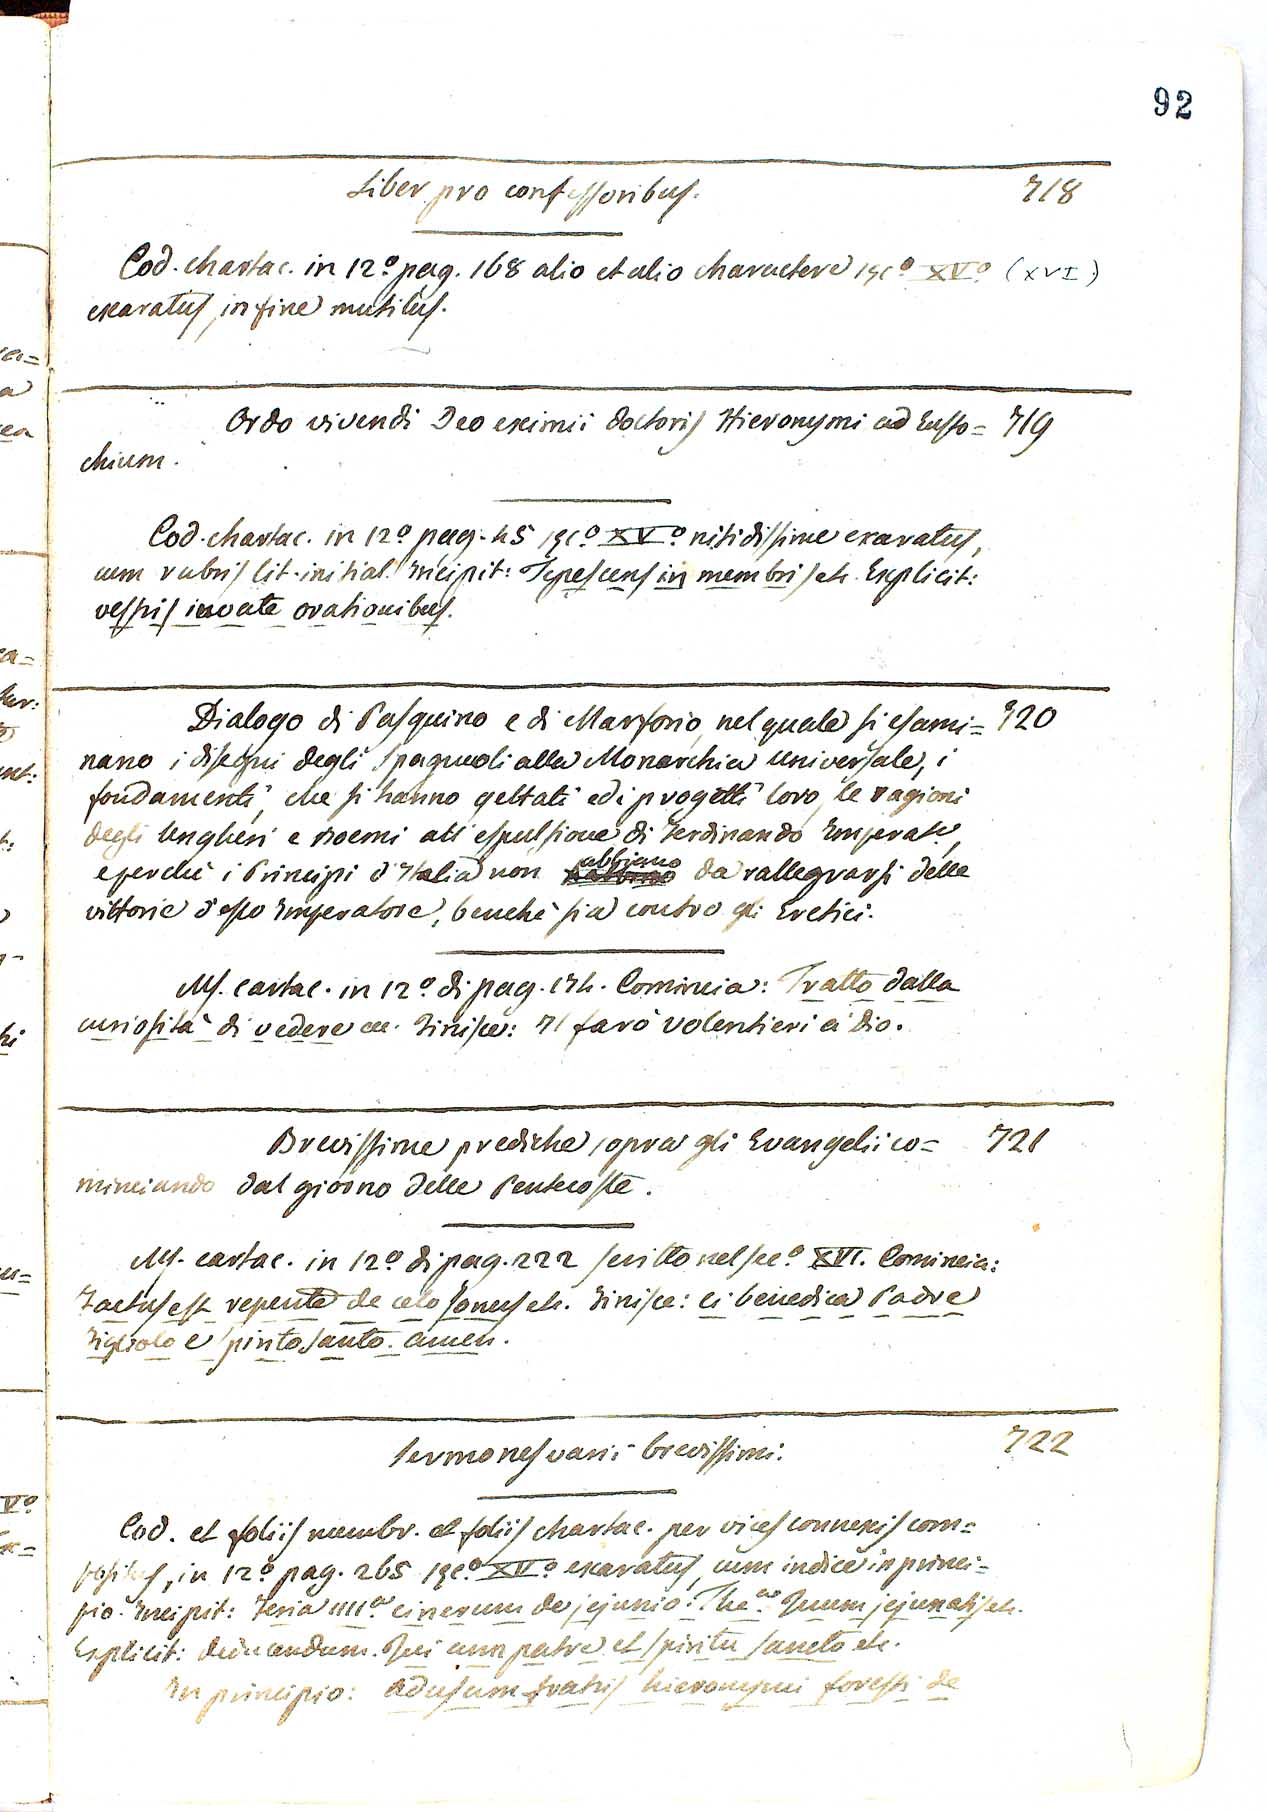 92
Liber pro confessoribus. 718
Cod. chartac. in 12.º pag. 168 alio et alio charactere sęc.º XV.º (XVI)
exaratus, in fine mutilus.
Ordo vivendi Deo eximii doctoris Hieronymi ad Eusto= 719
chium.
Cod. chartac. in 12.º pag. 45 sęc.º XV.º nitidissime exaratus,
cum rubris lit. initial. Incipit: Tepescens in membris etc. Explicit:
vestris iuvate orationibus.
Dialogo di Pasquino e di Marforio, nel quale si esami= 720
nano i disegni degli Spagnuoli alla Monarchia universale, i
fondamenti, che si hanno gettati ed i progetti loro, le ragioni
degli Ungheri e Boemi all'espulsione di Ferdinando Imperat.e,
e perchè i Principi d'Italia non abbiano da rallegrarsi delle
vittorie d'esso Imperatore, benchè sia contro gli Eretici.
Ms. cartac. in 12.º di pag. 134. Comincia: Tratto dalla
curiosità di vedere ec. Finisce: Il farò volentieri à dio.
Brevissime prediche sopra gli Evangelii co= 721
minciando dal giorno delle Pentecoste.
Ms. cartac. in 12.º di pag. 222 scritto nel sec.º XVI. Comincia:
Factus est repente de celo sonus etc. Finisce: ci benedica Padre
Figliolo e spirito santo. amen.
Sermones varii brevissimi. 722
Cod. et foliis membr. et foliis chartac. per vices connexis com=
positus, in 12.º pag. 265 sęc.º XV.º exaratus, cum indice in princi=
pio. Incipit: Feria IIII.a cinerum de jejunio. The.ª Quum jejunatis etc.
Explicit: deducendum. Qui cum patre et spiritu sancto etc.
In principio: Ad usum fratris hieronymi foresti de